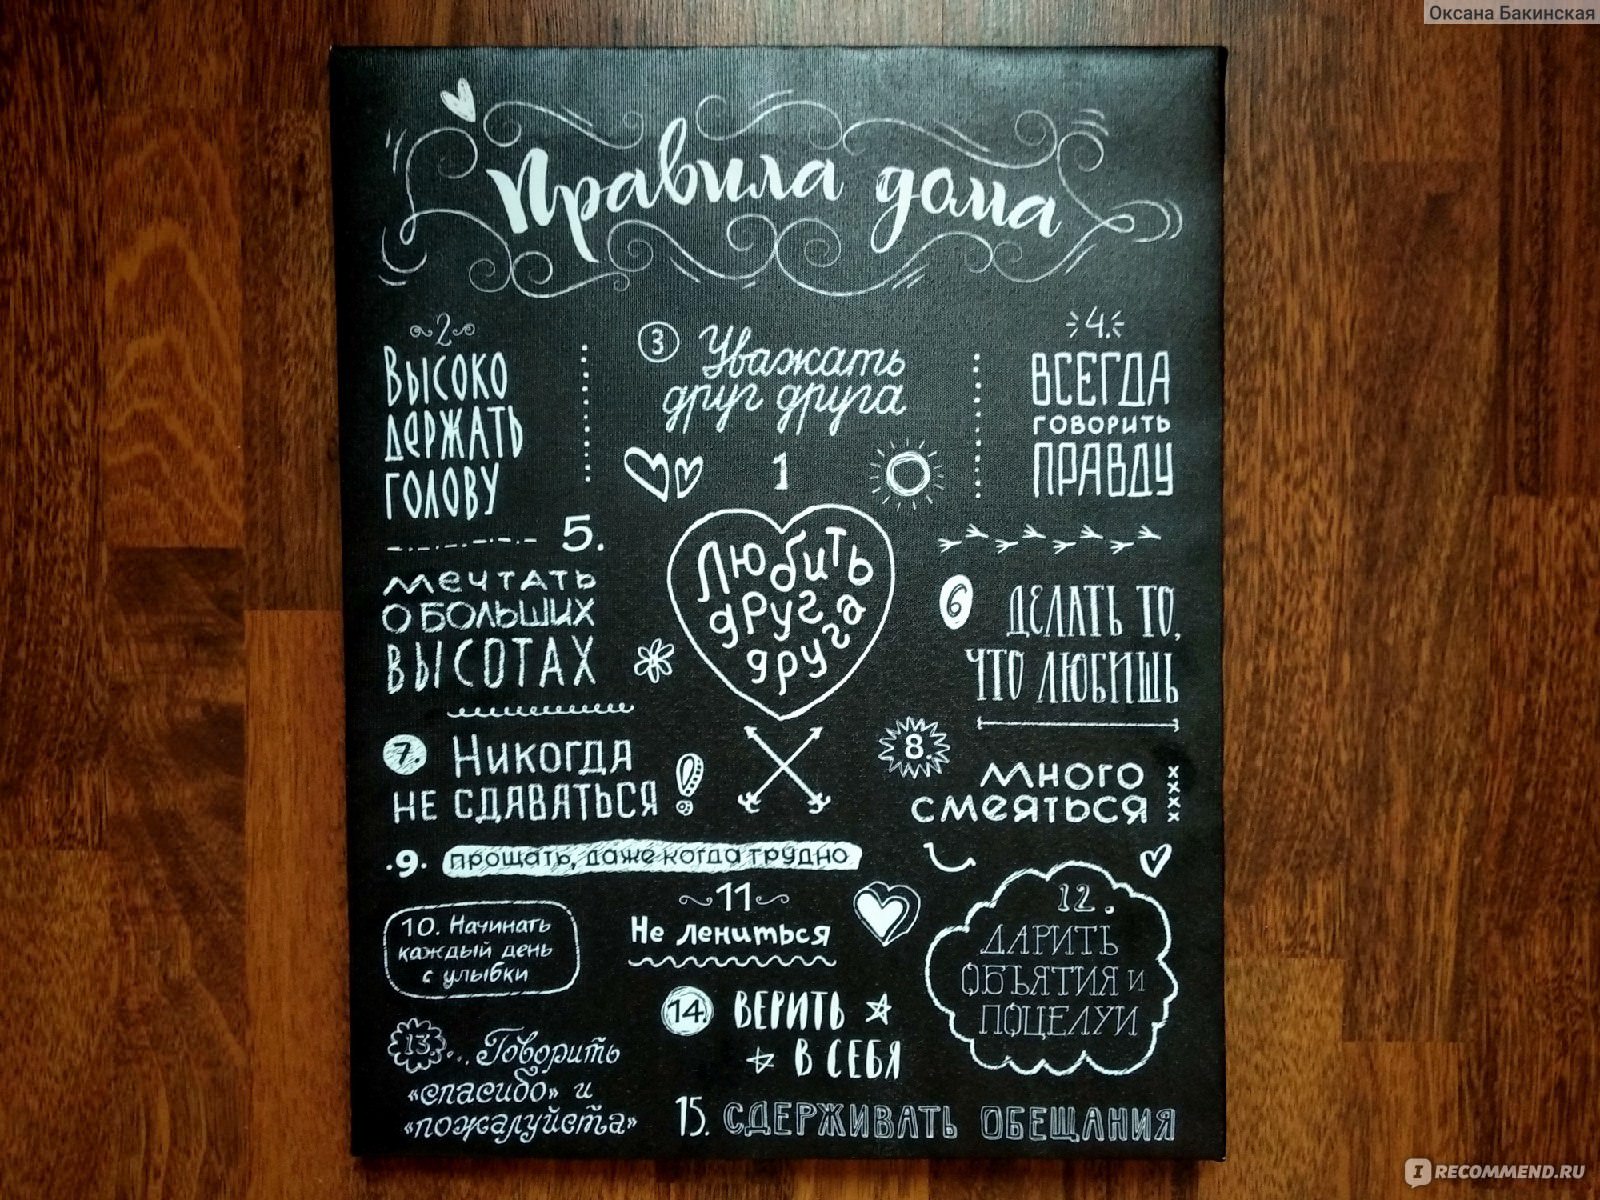 Оксана Бакинская
Правила дома
2
Высоко
держать
голову
3 Уважать
друг друга
4.
ВСЕГДА
ГОВОРИТЬ
ПРАВДУ
1
Любить
друг
друга
5.
мечтать
о больших
высотах
6 ДЕЛАТЬ ТО,
ЧТО ЛЮБИШЬ
7. Никогда
не сдаваться
8.
много
смеяться
.9. прощать, даже когда трудно
10. Начинать
каждый день
с улыбки
11
Не лениться
12.
ДАРИТЬ
ОБЪЯТИЯ и
ПОЦЕЛУИ
13... Говорить
«спасибо» и
«пожалуйста»
14. ВЕРИТЬ
В СЕБЯ
15. СДЕРЖИВАТЬ ОБЕЩАНИЯ
IRECOMMEND.RU